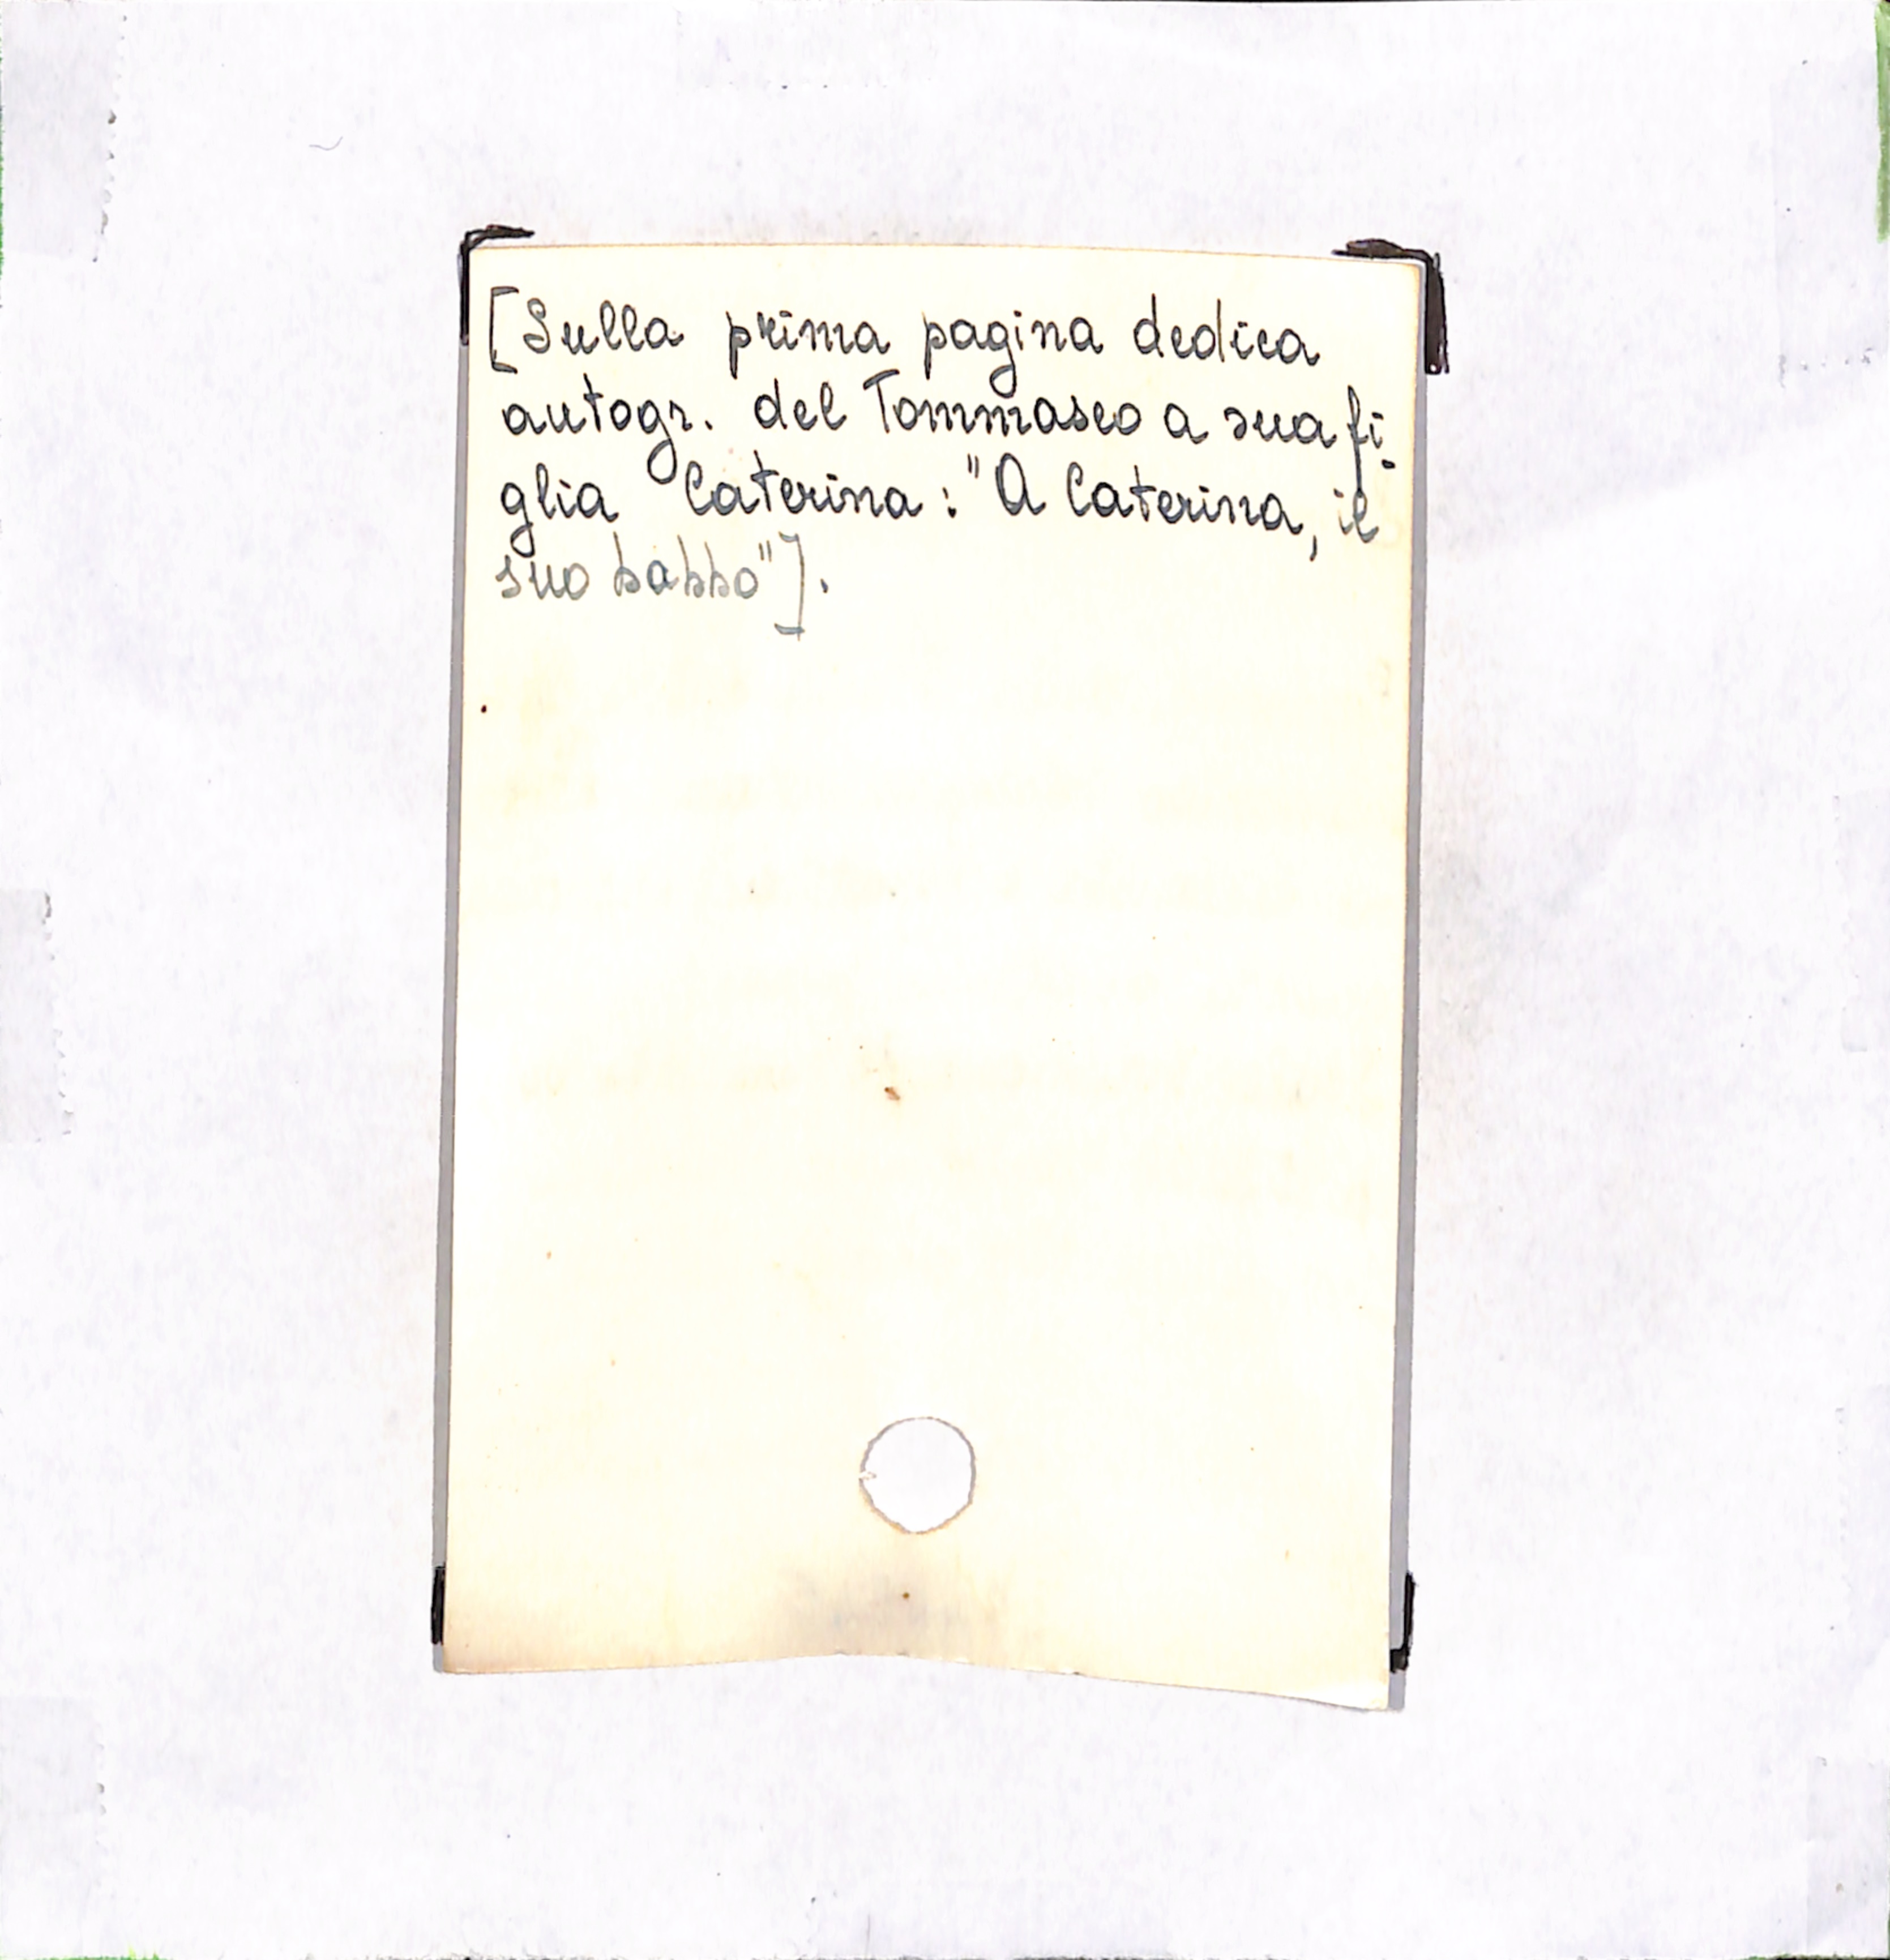 [Sulla prima pagina dedica
autogr. del Tommaseo a sua fi-
glia Caterina: "A Caterina, il
suo babbo"].